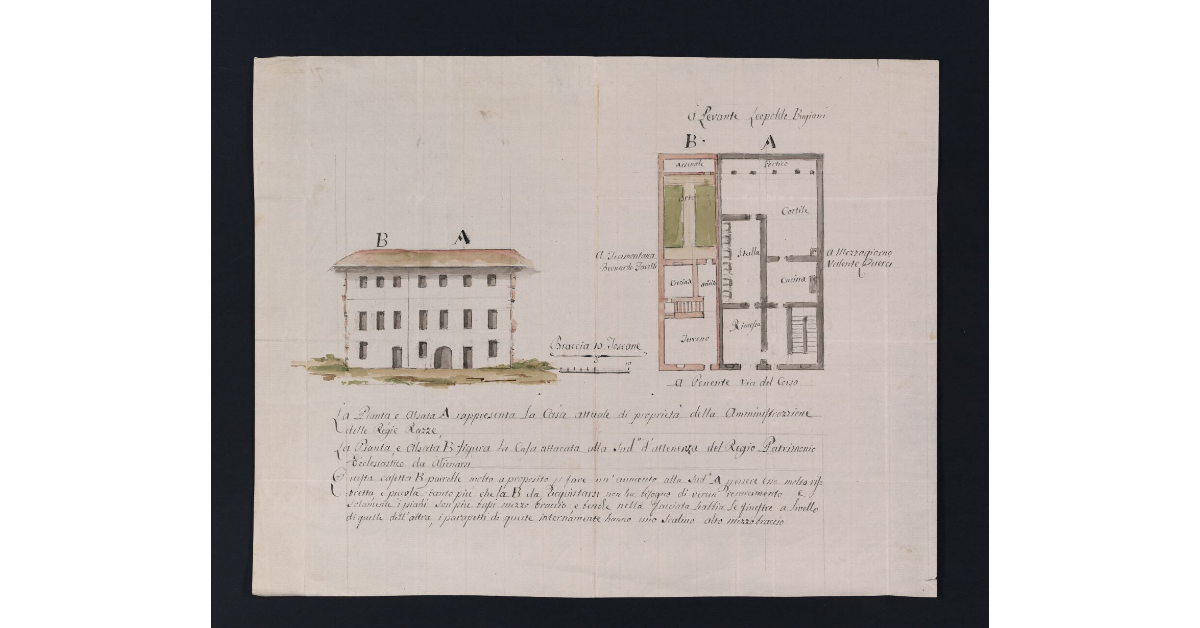 A Levante Leopoldo Bugioni
B. A
Portico
Orto
Cortile
B A
A Tramontana
Bernardo
Stalla
A Mezzogiorno
Valente Ducci
Cucina
Cucina
Rimessa
Terreno
Braccia 10 Toscane
A Ponente Via del Corso
La Pianta e Alsata A rappresenta la Casa attuale di proprietà della Amministrazione
delle Regie Razze,
La Pianta, e Alsata B figura la Casa attacata alla Sudª d'attenenza del Regio Patrimonio
Ecclesiastico da Alienarsi
Questa casetta B sarebbe molto a proposito p fare un'aumento alla Sudª A
stretta e piccola, tanto più che la B da Acquistarsi non ha bisogno di verun risarcimento e
solamente i piani son più bassi mezzo braccio, e benche nella facciata habbia le finestre a livello
di quelle dell'altra, i parapetti di queste internamente hanno uno scalino alto mezzo braccio